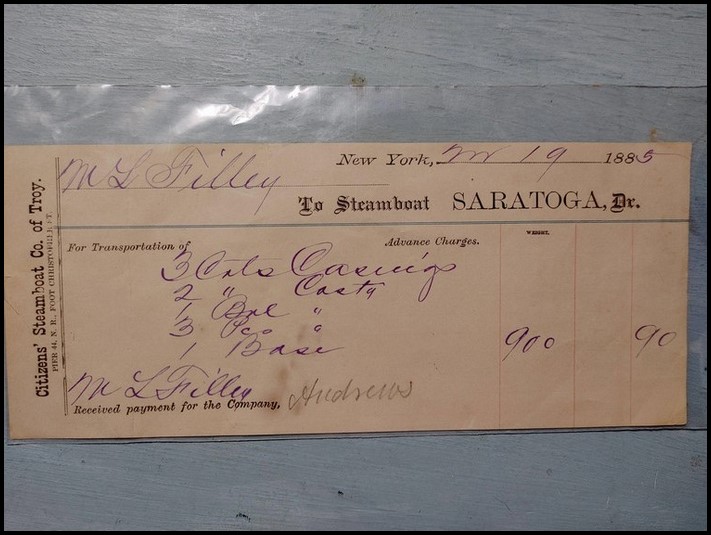 Citizens' Steamboat Co. of Troy.
PIER 44, N. R., FOOT CHRISTOPHER ST.
New York, 19 1885
M L Filley
To Steamboat SARATOGA, Dr.
For Transportation of Advance Charges. WEIGHT.
3 Crts Casings
2 " Castg
1 Bbl "
3 Pcs "
1 Base 900 90
M L Filley
Received payment for the Company, Andrews